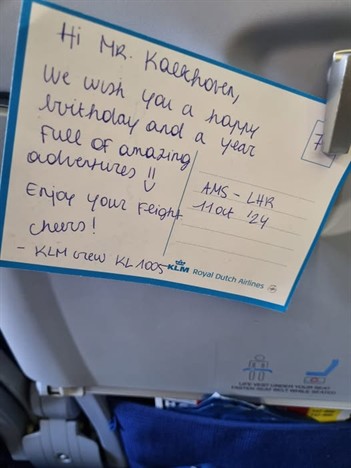 Hi Mr. Kalkhoven,
we wish you a happy
birthday and a year
full of amazing
adventures !!
Enjoy your flight
cheers!
- KLM crew KL1005
AMS - LHR
11 oct '24
KLM Royal Dutch Airlines
LIFE VEST UNDER YOUR SEAT
FASTEN SEAT BELT WHILE SEATED